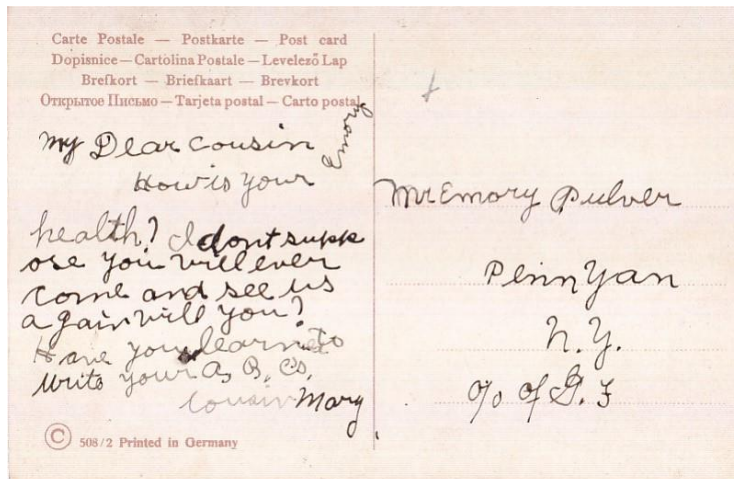 Carte Postale — Postkarte — Post card
Dopisnice — Cartolina Postale — Levelező Lap
Brefkort — Briefkaart — Brevkort
Открытое Письмо — Tarjeta postal — Carto postal
My Dear Cousin
Emory
How is your
health? I dont supp
ose you will ever
come and see us
again will you?
Have you learned to
write your A, B, Cs,
Cousin Mary
© 508/2 Printed in Germany
Mr Emory Pulver
Penn Yan
N.Y.
% of G. F